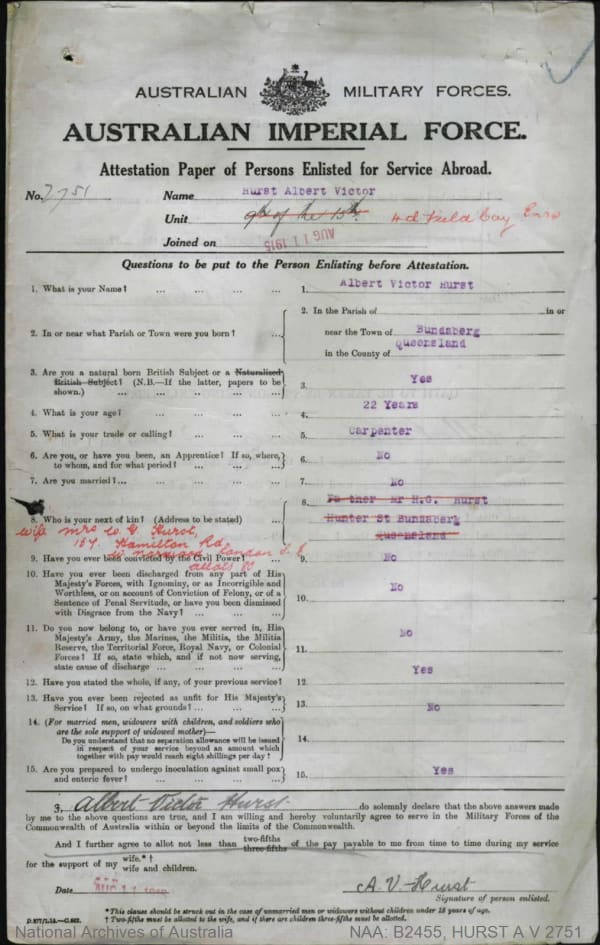 AUSTRALIAN MILITARY FORCES.
AUSTRALIAN IMPERIAL FORCE.
Attestation Paper of Persons Enlisted for Service Abroad.
No. 2751 Name Hurst Albert Victor
Unit 9th of the 15th. 4th Field Coy Engrs
Joined on AUG 11 1915
Questions to be put to the Person Enlisting before Attestation.
1. What is your Name? ... ... ... ... 1. Albert Victor Hurst
2. In or near what Parish or Town were you born? ... 2. In the Parish of in or
near the Town of Bundaberg
in the County of Queensland
3. Are you a natural born British Subject or a Naturalised
British Subject? (N.B.—If the latter, papers to be
shown.) ... ... ... ... ... 3. Yes
4. What is your age? ... ... ... ... 4. 22 Years
5. What is your trade or calling? ... ... ... 5. Carpenter
6. Are you, or have you been, an Apprentice? If so, where,
to whom, and for what period? ... ... ... 6. No
7. Are you married? ... ... ... ... ... 7. No
8. Who is your next of kin? (Address to be stated) ... 8. Father Mr H.G. Hurst
Hunter St Bundaberg
Queensland
wife Mrs Hurst,
Hamilton Rd,
W. Norwood London S.E
9. Have you ever been convicted by the Civil Power? ... 9. No
10. Have you ever been discharged from any part of His
Majesty's Forces, with Ignominy, or as Incorrigible and
Worthless, or on account of Conviction of Felony, or of a
Sentence of Penal Servitude, or have you been dismissed
with Disgrace from the Navy? ... ... ... 10. No
11. Do you now belong to, or have you ever served in, His
Majesty's Army, the Marines, the Militia, the Militia
Reserve, the Territorial Force, Royal Navy, or Colonial
Forces? If so, state which, and if not now serving,
state cause of discharge ... ... ... ... 11. No
12. Have you stated the whole, if any, of your previous service? 12. Yes
13. Have you ever been rejected as unfit for His Majesty's
Service? If so, on what grounds? ... ... ... 13. No
14. (For married men, widowers with children, and soldiers who
are the sole support of widowed mother)—
Do you understand that no separation allowance will be issued
in respect of your service beyond an amount which
together with pay would reach eight shillings per day? 14.
15. Are you prepared to undergo inoculation against small pox
and enteric fever? ... ... ... ... 15. Yes
I, Albert Victor Hurst do solemnly declare that the above answers made
by me to the above questions are true, and I am willing and hereby voluntarily agree to serve in the Military Forces of the
Commonwealth of Australia within or beyond the limits of the Commonwealth.
And I further agree to allot not less than two-fifths three-fifths of the pay payable to me from time to time during my service
for the support of my wife.* † wife and children.
Date AUG 11 1915 A. V. Hurst
Signature of person enlisted.
*This clause should be struck out in the case of unmarried men or widowers without children under 18 years of age.
† Two-fifths must be allotted to the wife, and if there are children three-fifths must be allotted.
National Archives of Australia NAA: B2455, HURST A V 2751